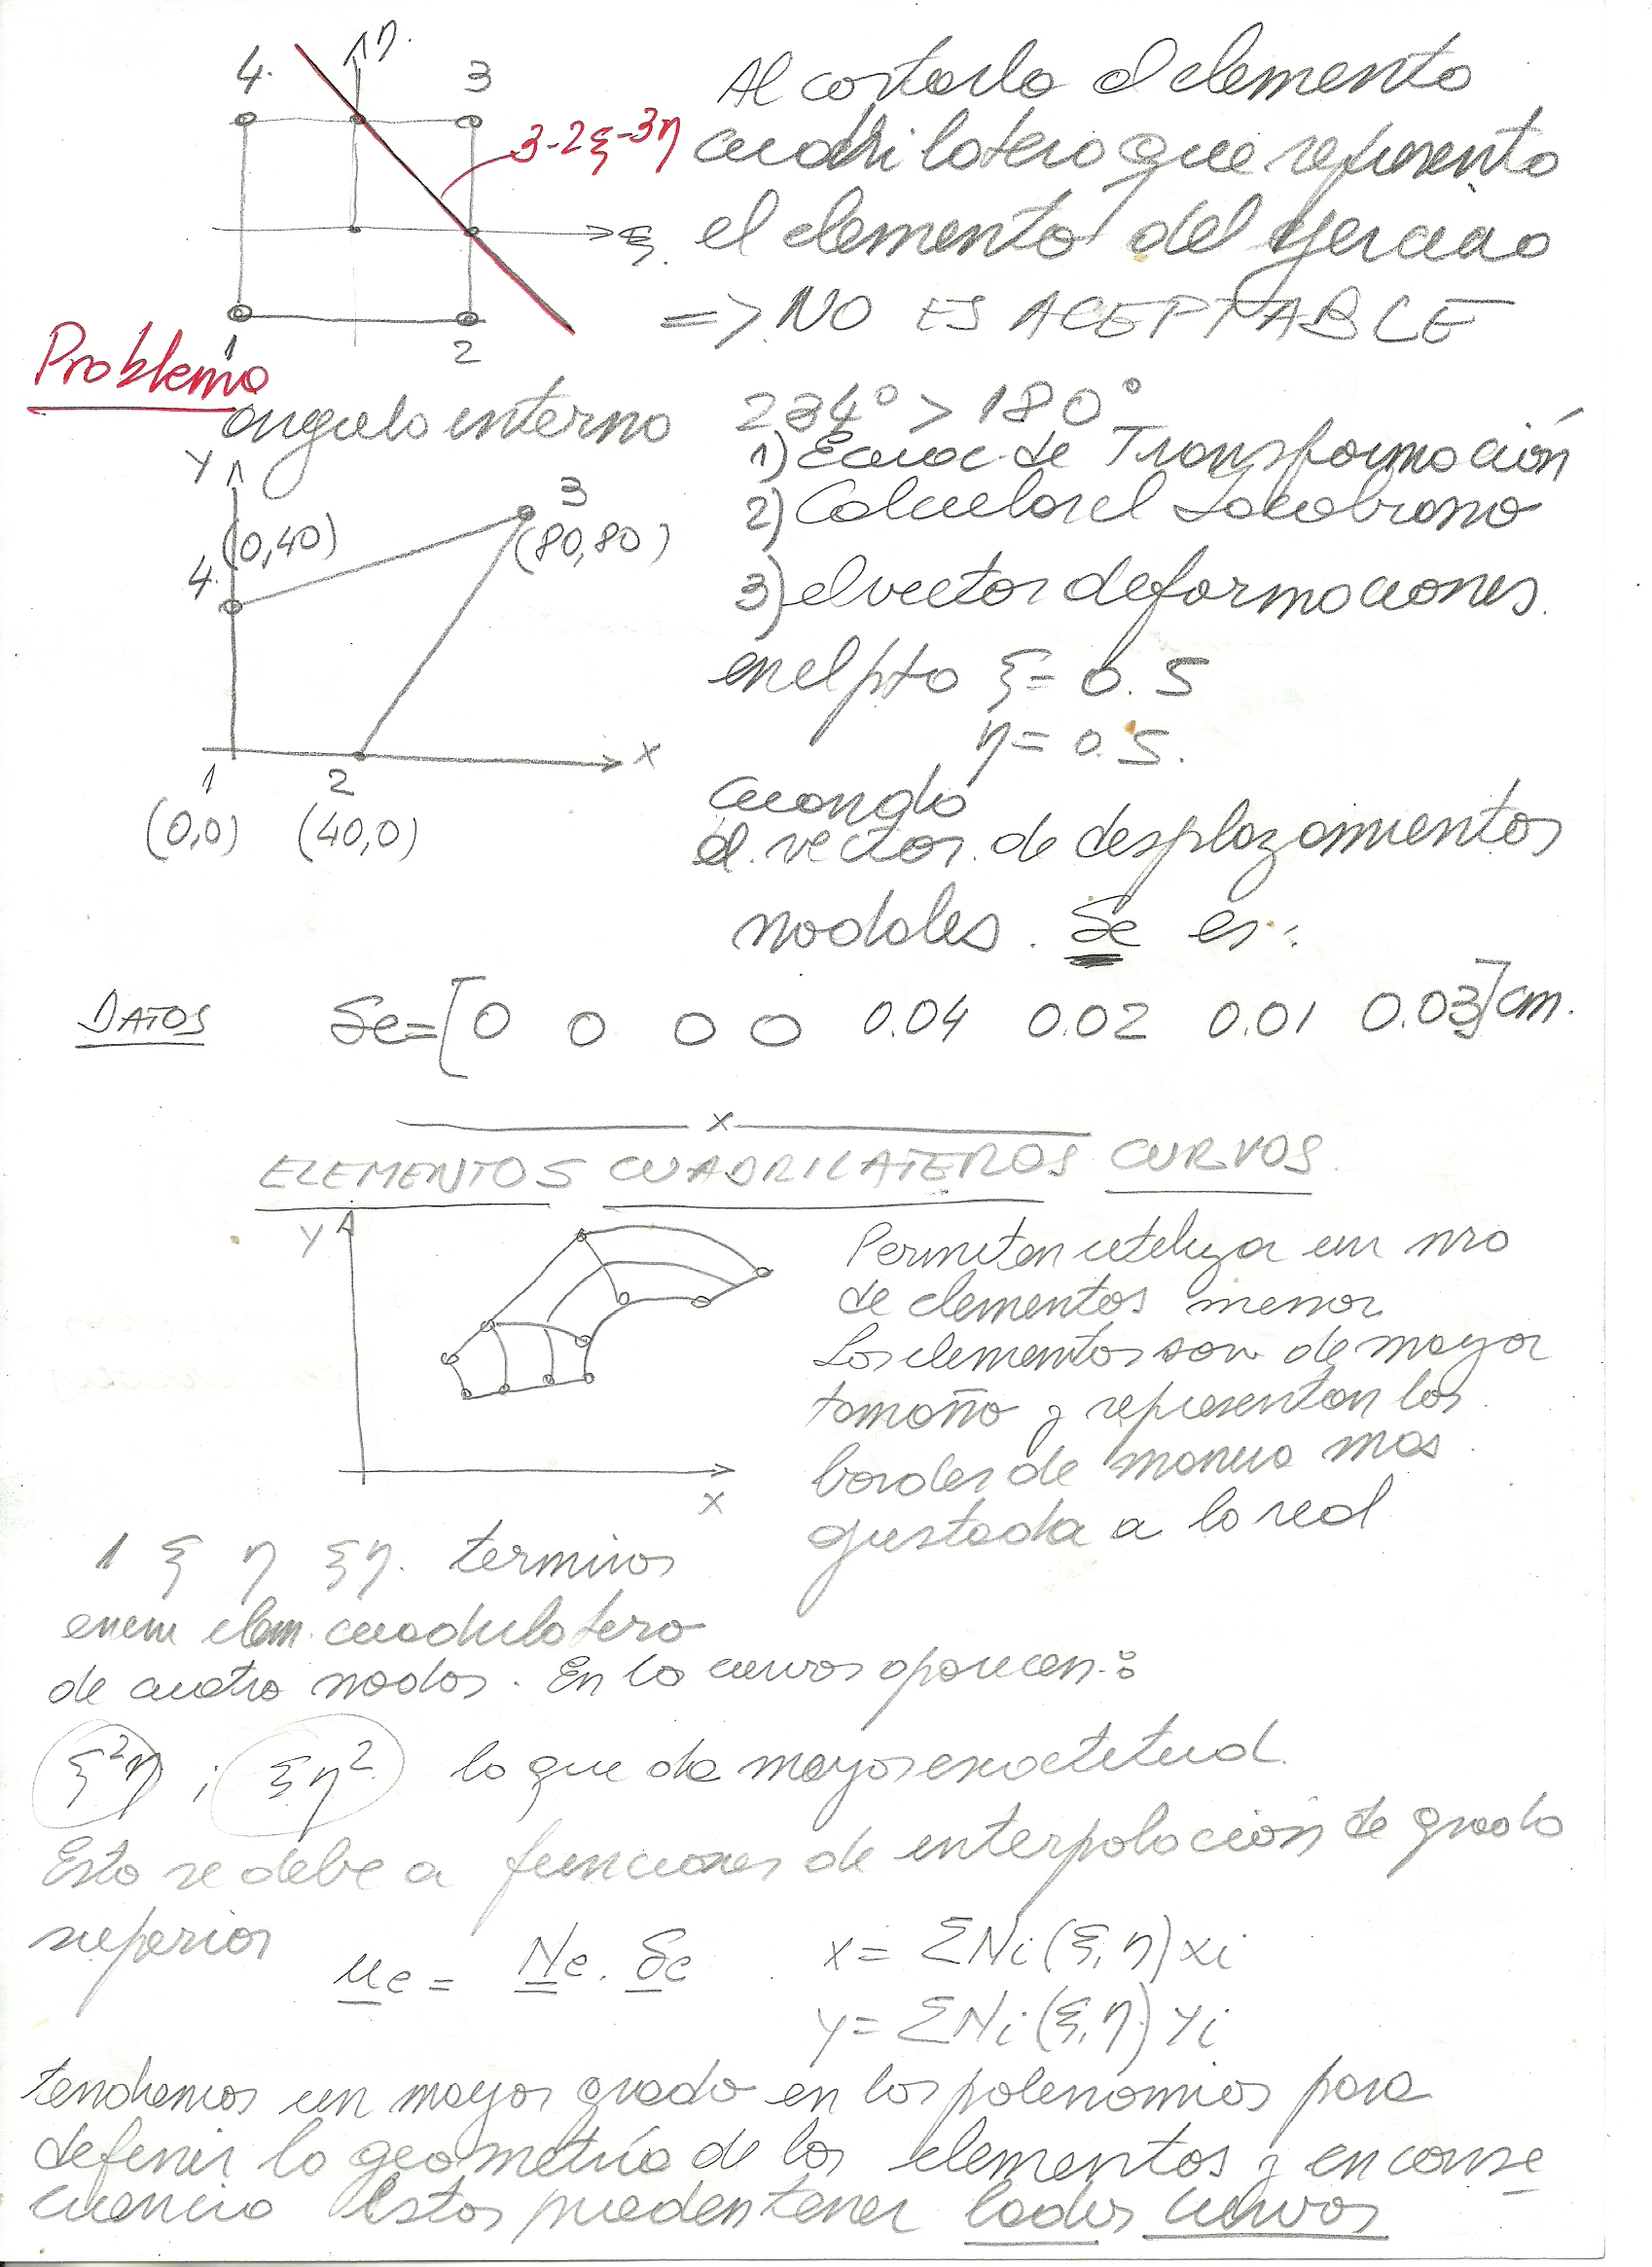 4. η. 3
3-2ξ-3η
ξ.
1 2
Al cortarla el elemento
cuadrilatero que representa
el elemento del ejercicio
=> NO ES ACEPTABLE
Problema
angulo interno 234° > 180°
Y
(0,40)
4.
3
(80,80)
X
1 2
(0,0) (40,0)
1) Ecuac. de Transformación
2) Calcular el Jacobiano
3) el vector deformaciones.
en el pto ξ= 0.5
η= 0.5.
cuando
el vector de desplazamientos
nodales. δe es:
DATOS δe=[0 0 0 0 0.04 0.02 0.01 0.03] cm.
x
ELEMENTOS CUADRILATEROS CURVOS.
Y
X
Permiten utilizar un nro
de elementos menor
Los elementos son de mayor
tamaño y representan los
bordes de manera mas
ajustada a la red
1 ξ η ξη. terminos
en un elem. cuadrilatero
de cuatro nodos. En los curvos aparecen:
ξ²η ; ξη² lo que da mayor exactitud.
Esto se debe a funciones de interpolación de grado
superior
ue = Ne. δe
x= ΣNi(ξ,η)xi
y= ΣNi(ξ,η)yi
tendremos un mayor grado en los polinomios para
definir la geometría de los elementos y en conse
cuencia Estos pueden tener lados curvos